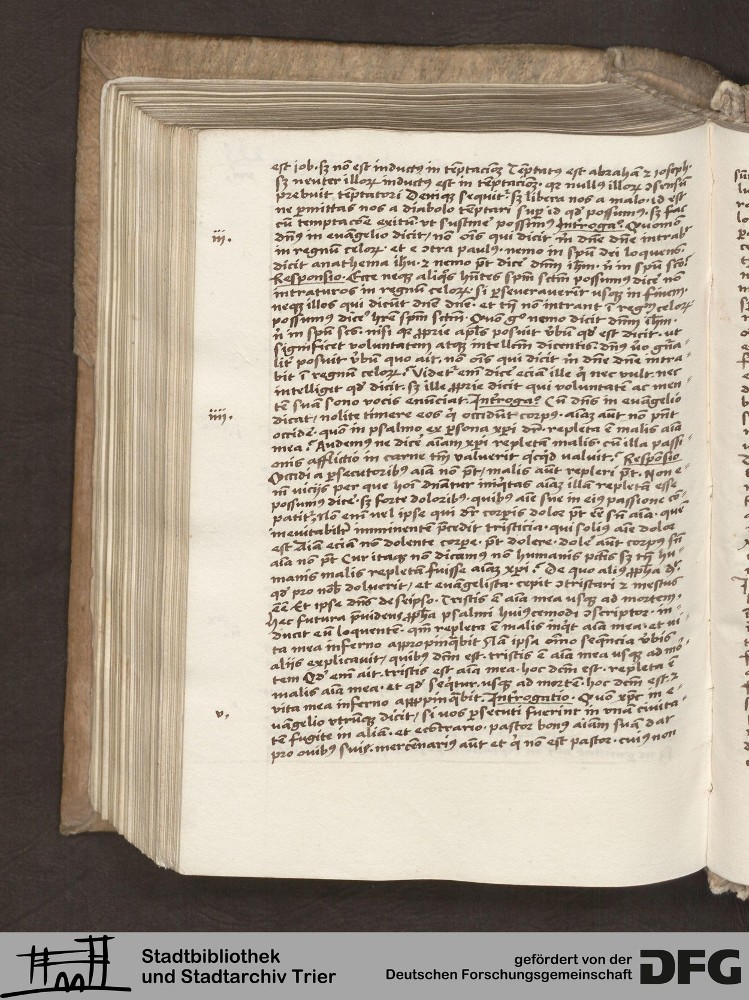 est iob. sꝫ nõ est inductꝰ in tẽptacioẽ Tẽptatꝰ est abrahã ⁊ ioseph.
sꝫ neuter illoꝝ inductꝰ est in tẽptacioẽ. qꝛ nullꝰ illoꝝ ↄsensũ
prebuit tẽptatori Deniqꝫ sequit᷑. sꝫ libera nos a malo. id est
ne ꝑmittas nos a diabolo tẽptari sup̱ id qđ possumꝰ. sꝫ fac
cũ temptacõe exitũ. vt sustine᷑ possimꝰ Introga᷑. Quomõ
iii.
dñs in euãgelio dicit/ nõ oĩs qui dicit m̃ dñe dñe intrab᷑
in regnũ celoꝝ. et e ↄtra paulꝰ. nemo in spũ dei loquens.
dicit anathema ihũ. ⁊ nemo p̃t dice᷑ dñm ihm̃. ñ in spũ scõ.
Responsio. Ecce neqꝫ aliqͦs hñtes spm̃ sctm̃ possumꝰ dice᷑ nõ
intraturos in regnũ celoꝝ. si ꝑseveraverir̃ usqꝫ in finem.
neqꝫ illos qui dicũt dñe dñe. et tñ nõ intrant ĩ regnũ celoꝝ
possumꝰ dice᷑ hr̃e spm̃ sctm̃. Quõ gͦ nemo dicit dñm ihm̃.
ñ in spũ scõ. nisi qꝛ ꝓprie apl̃s posuit v̓bũ qđ est dicit. ut
significet voluntatem atqꝫ intellc̃m dicentis. dñs v̓o gñã-
lit᷑ posuit v̓bũ quo ait. nõ oĩs qui dicit m̃ dñe dñe intra-
bit ĩ regnũ celoꝝ. Videt᷑ em̃ dice᷑ eciã ille qͥ nec vult. nec
intelliget qđ dicit. sꝫ ille ꝓprie dicit qui voluntatẽ ac men-
tẽ suã sono vocis enũciat. Introga᷑. Cũ dñs in euãgelio
iiii.
dicat/ nolite timere eos qͥ occidũt corpꝰ. aĩaꝫ aũt nõ pñt
occide᷑. quõ in psalmo ex ꝑsona xp̃i dr̃. repleta ẽ malis aĩa
mea. Audemꝰ ne dice᷑ aĩam xp̃i repletã malis. cũ illa passi-
onis afflictio in carne tm̃ valuerit qͥcqͥd valuit. Responsio
Occidi a ꝑsecutoribꝰ aĩa nõ p̃t/ malis aũt repleri p̃t. Non e-
ni᷑ vicijs per que hoĩ dñatur iniqͥtas aĩaꝫ illã repletã esse
possumꝰ dice᷑. sꝫ forte doloribꝰ. quibꝰ aĩe sue in eiꝰ passione cõ-
patit᷑. Nã em̃ uel ipse qui dr̃ corpĩs dolor p̃t eẽ sñ aĩa. quẽ
inevitabilit᷑ imminentẽ p̃cedit tristicia. qui soliꝰ aĩe dolor
est Aĩa eciã nõ dolente corpe̱. p̃t dolere. dole᷑ aũt corpꝰ sñ
aĩa nõ p̃t Cur itaqꝫ nõ dicamꝰ nõ humanis pctĩs sꝫ tñ hu-
manis malis repletã fuisse aĩaꝫ xp̃i. De quo aliꝰ ꝓpha dr̃.
qđ pro nob̃ doluerit/ et euãgelista. cepit ↄtristari ⁊ mestus
eẽ Et ipse dñs de seip̃o. Tristis ẽ aĩa mea usqꝫ ad mortem.
Hec futura p̃uidens ꝓpha psalmi huiꝰcemodi ↄscriptor. in-
ducit eũ loquentẽ. qm̃ repleta ẽ malis inqͥt aĩa mea. et vi-
ta mea inferno appropinqͣbit Nã ipsa oĩno seq̃ncia v̓bis
alijs explicavit/ quibꝰ dc̃m est. tristis ẽ aĩa mea usqꝫ ad mõ
tem Qđ em̃ ait. tristis est aĩa mea. hoc dc̃m est. repleta ẽ
malis aĩa mea. et qđ seq̃tur. usqꝫ ad mortẽ. hoc dc̃m est. ⁊
vita mea inferno appropinqͣbit. Introgatio. Quõ xp̃c in e-
v.
uãgelio vtrũqꝫ dicit/ si vos ꝑsecuti fuerint in vnã civita-
tẽ fugite in aliã. et ecõtrario. pastor bonꝰ aĩam suã dat
pro ovibꝰ suis. mercẽnariꝰ aũt et qͥ nõ est pastor. cuiꝰ non
Stadtbibliothek
und Stadtarchiv Trier
gefördert von der
Deutschen Forschungsgemeinschaft
DFG